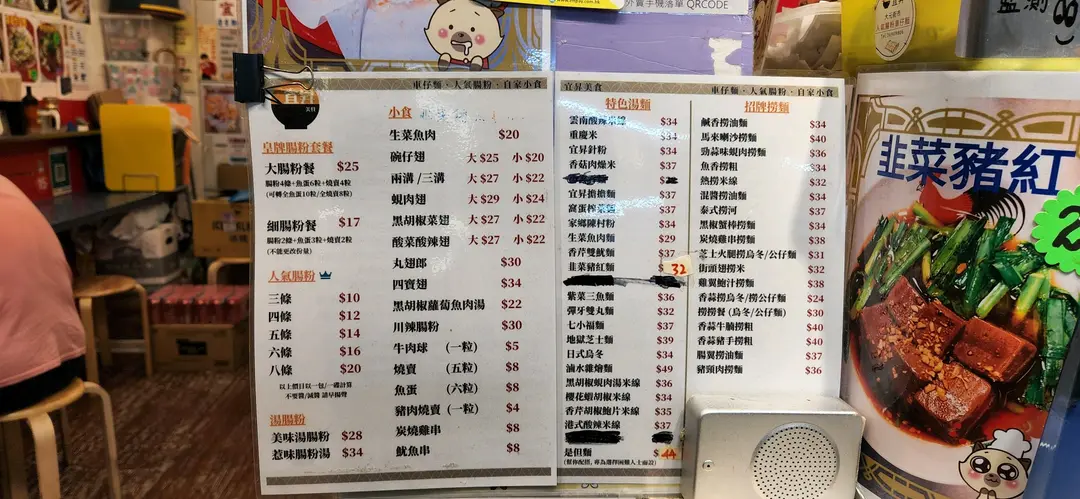 外賣手機落單 QRCODE
宜昇
監測
車仔麵、人氣腸粉、自家小食
宜昇
美食
皇牌腸粉套餐
大腸粉餐 $25
腸粉4條+魚蛋6粒+燒賣4粒
(可轉全魚蛋10粒/全燒賣8粒)
細腸粉餐 $17
腸粉2條+魚蛋3粒+燒賣2粒
(不能更改份量)
人氣腸粉
三條 $10
四條 $12
五條 $14
六條 $16
八條 $20
以上價目以一包/一碟計算
不要醬/減醬 請早揚聲
湯腸粉
美味湯腸粉 $28
惹味腸粉湯 $34
小食
生菜魚肉 $20
碗仔翅 大 $25 小 $20
兩溝/三溝 大 $27 小 $22
蜆肉翅 大 $29 小 $24
黑胡椒菜翅 大 $27 小 $22
酸菜酸辣翅 大 $27 小 $22
丸翅郎 $30
四寶翅 $34
黑胡椒蘿蔔魚肉湯 $22
川辣腸粉 $30
牛肉球 (一粒) $5
燒賣 (五粒) $8
魚蛋 (六粒) $8
豬肉燒賣 (一粒) $4
炭燒雞串 $8
魷魚串 $8
宜昇美食
車仔麵、人氣腸粉、自家小食
特色湯麵
雲南酸辣米線 $34
重慶米 $34
宜昇針粉 $34
香菇肉燥米 $37
宜昇擔擔麵 $37
窩蛋榨菜麵 $37
家鄉陳村粉 $34
生菜魚肉麵 $29
香芹雙魷麵 $37
韭菜豬紅麵 32
紫菜三魚麵 $36
彈牙雙丸麵 $32
七小福麵 $37
地獄芝士麵 $39
日式烏冬 $34
滷水雜燴麵 $49
黑胡椒蜆肉湯米線 $36
櫻花蝦胡椒米線 $34
香芹胡椒鮑片米線 $35
港式酸辣米線 $37
是但麵 $44
招牌撈麵
鹹香撈油麵 $34
馬來喇沙撈麵 $40
勁蒜味蜆肉撈麵 $36
魚香撈粗 $34
熱撈米線 $32
混醬撈油麵 $34
泰式撈河 $37
黑椒蟹棒撈麵 $34
炭燒雞串撈麵 $38
芝士火腿撈烏冬/公仔麵 $31
街頭翅撈米 $32
雞翼鮑汁撈麵 $38
香蒜撈烏冬/撈公仔麵 $24
撈撈餐 (烏冬/公仔麵) $30
香蒜牛腩撈粗 $40
香蒜豬手撈粗 $40
腸翼撈油麵 $37
豬頸肉撈麵 $36
韭菜豬紅